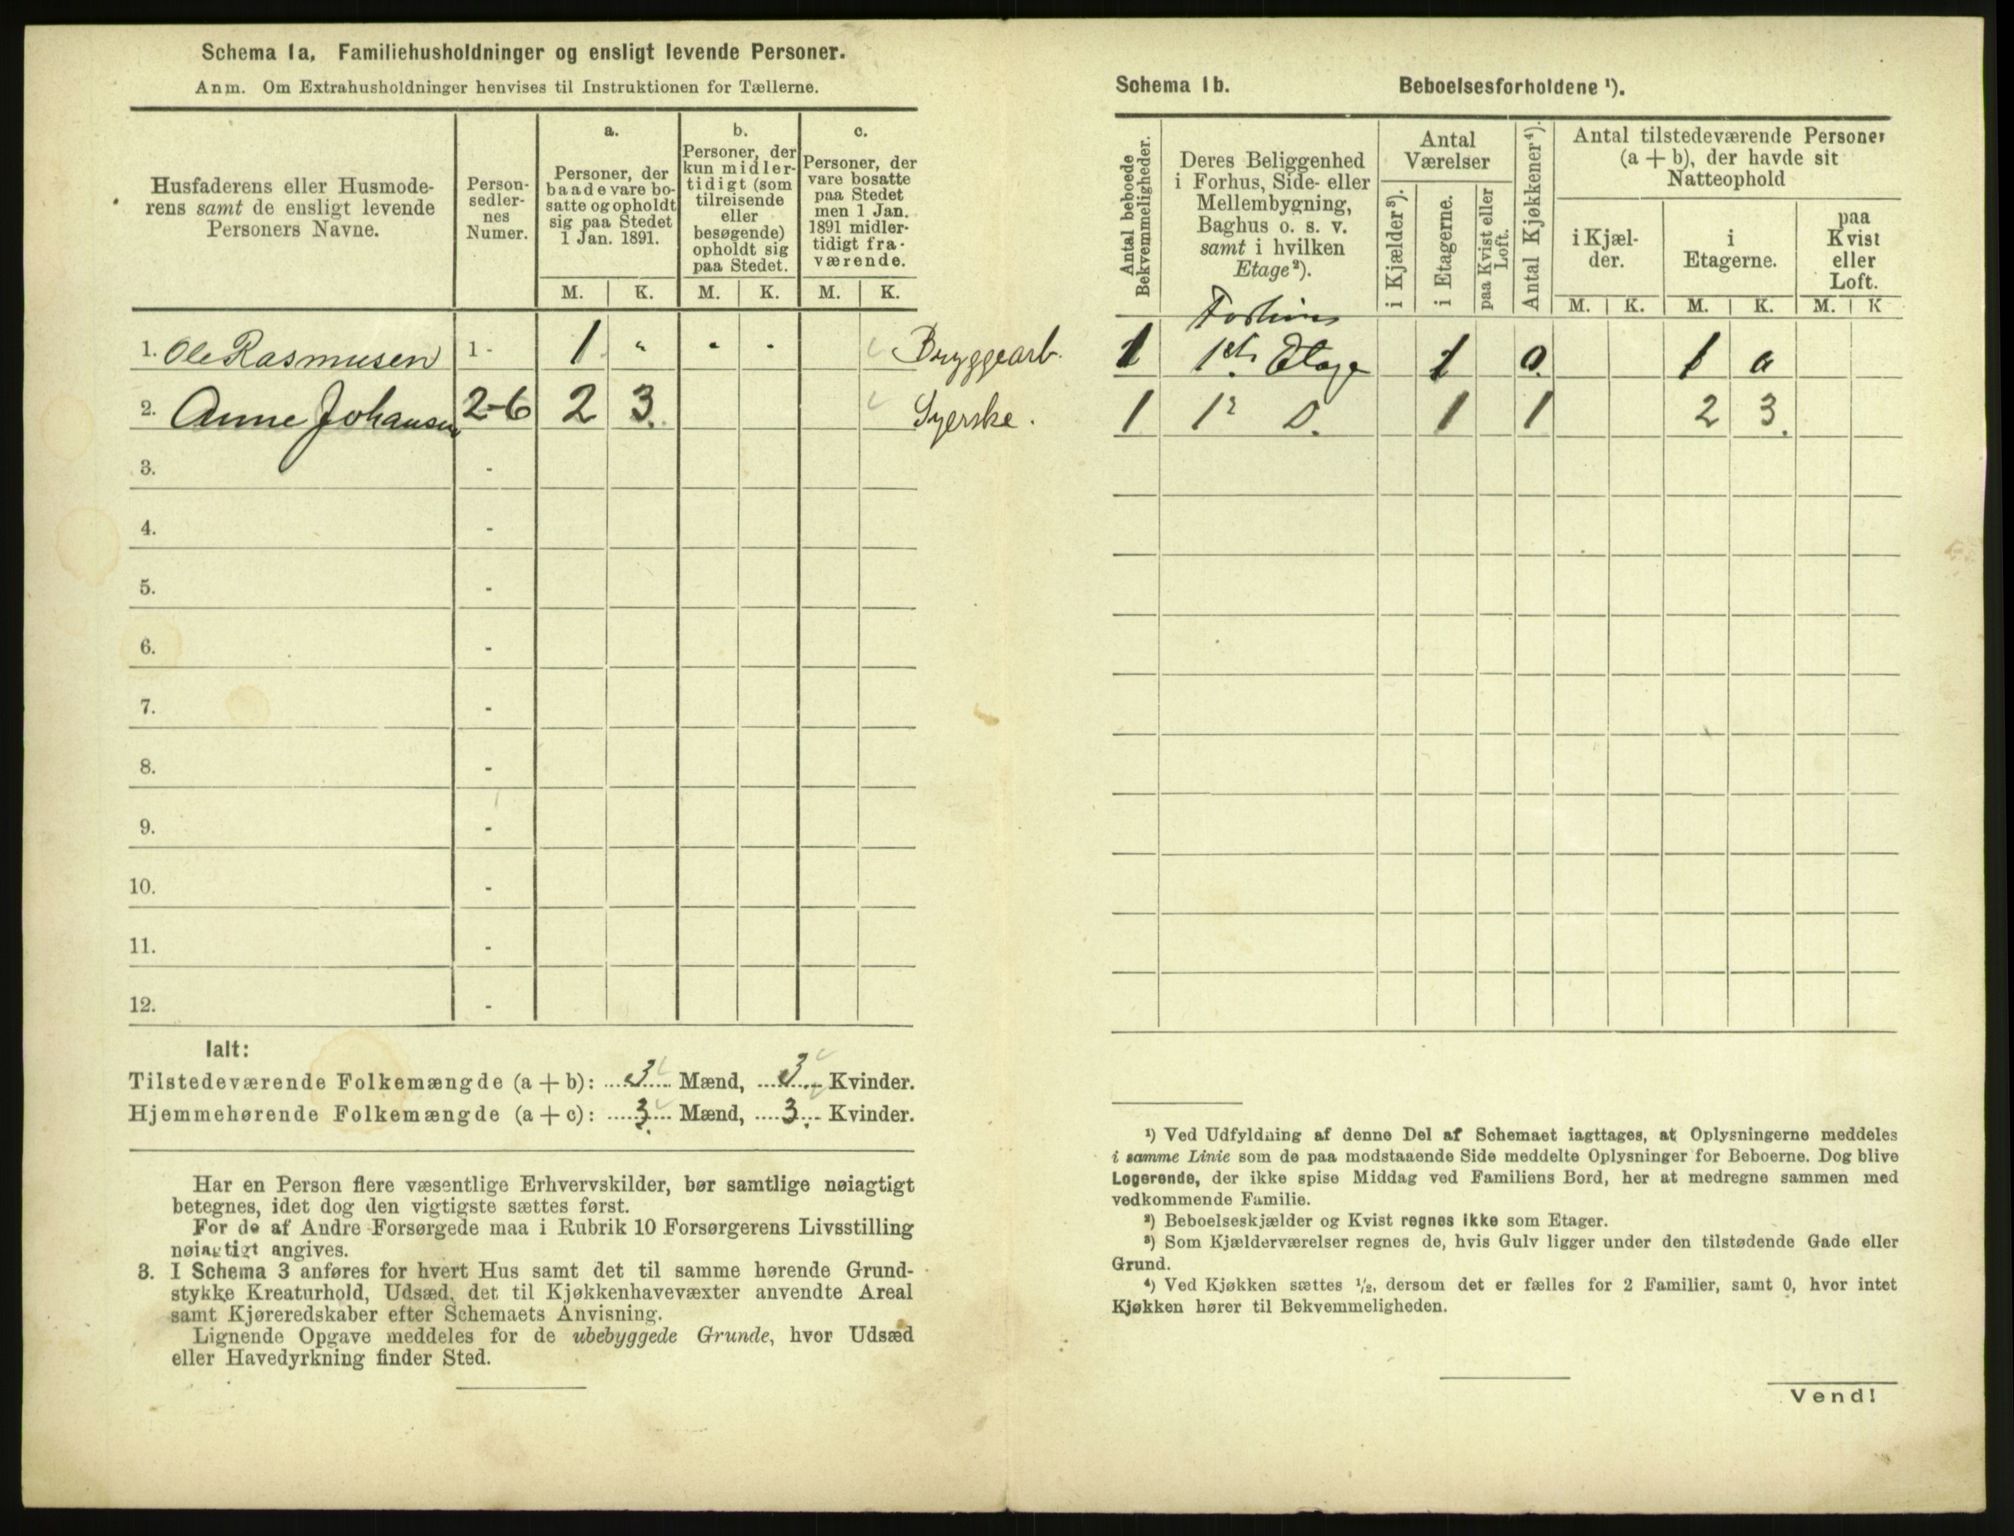 Schema 1a. Familiehusholdninger og ensligt levende Personer.
Anm. Om Extrahusholdninger henvises til Instruktionen for Tællerne.
Husfaderens eller Husmode-
rens samt de ensligt levende
Personers Navne.
Person-
sedler-
nes
Numer.
a.
Personer, der
baade vare bo-
satte og opholdt
sig paa Stedet
1 Jan. 1891.
b.
Personer, der
kun midler-
tidigt (som
tilreisende
eller
besøgende)
opholdt sig
paa Stedet.
c.
Personer, der
vare bosatte
paa Stedet
men 1 Jan.
1891 midler-
tidigt fra-
værende.
M. K. M. K. M. K.
1. Ole Rasmusen 1 - 1 " " " Bryggearb.
2. Anne Johansen 2-6 2 3. Syerske.
3. -
4. -
5. -
6. -
7. -
8. -
9. -
10. -
11. -
12. -
Ialt:
Tilstedeværende Folkemængde (a + b): 3 Mænd, 3 Kvinder.
Hjemmehørende Folkemængde (a + c): 3 Mænd, 3 Kvinder.
Har en Person flere væsentlige Erhvervskilder, bør samtlige nøiagtigt
betegnes, idet dog den vigtigste sættes først.
For de af Andre Forsørgede maa i Rubrik 10 Forsørgerens Livsstilling
nøiagtigt angives.
3. I Schema 3 anføres for hvert Hus samt det til samme hørende Grund-
stykke Kreaturhold, Udsæd, det til Kjøkkenhavevæxter anvendte Areal
samt Kjøreredskaber efter Schemaets Anvisning.
Lignende Opgave meddeles for de ubebyggede Grunde, hvor Udsæd
eller Havedyrkning finder Sted.
Schema 1b. Beboelsesforholdene ¹).
Antal beboede
Bekvemmeligheder.
Deres Beliggenhed
i Forhus, Side- eller
Mellembygning,
Baghus o. s. v.
samt i hvilken
Etage²).
Antal
Værelser
i Kjælder³).
i Etagerne.
paa Kvist eller
Loft.
Antal Kjøkkener⁴).
Antal tilstedeværende Personer
(a + b), der havde sit
Natteophold
i Kjæl-
der.
i
Etagerne.
paa
Kvist
eller
Loft.
M. K. M. K. M. K
Forhuus
1 1ste Etage 1 0. 1 0
1 1e D. 1 1 2 3.
¹) Ved Udfyldning af denne Del af Schemaet iagttages, at Oplysningerne meddeles
i samme Linie som de paa modstaaende Side meddelte Oplysninger for Beboerne. Dog blive
Logerende, der ikke spise Middag ved Familiens Bord, her at medregne sammen med
vedkommende Familie.
²) Beboelseskjælder og Kvist regnes ikke som Etager.
³) Som Kjælderværelser regnes de, hvis Gulv ligger under den tilstødende Gade eller
Grund.
⁴) Ved Kjøkken sættes ½, dersom det er fælles for 2 Familier, samt 0, hvor intet
Kjøkken hører til Bekvemmeligheden.
Vend!